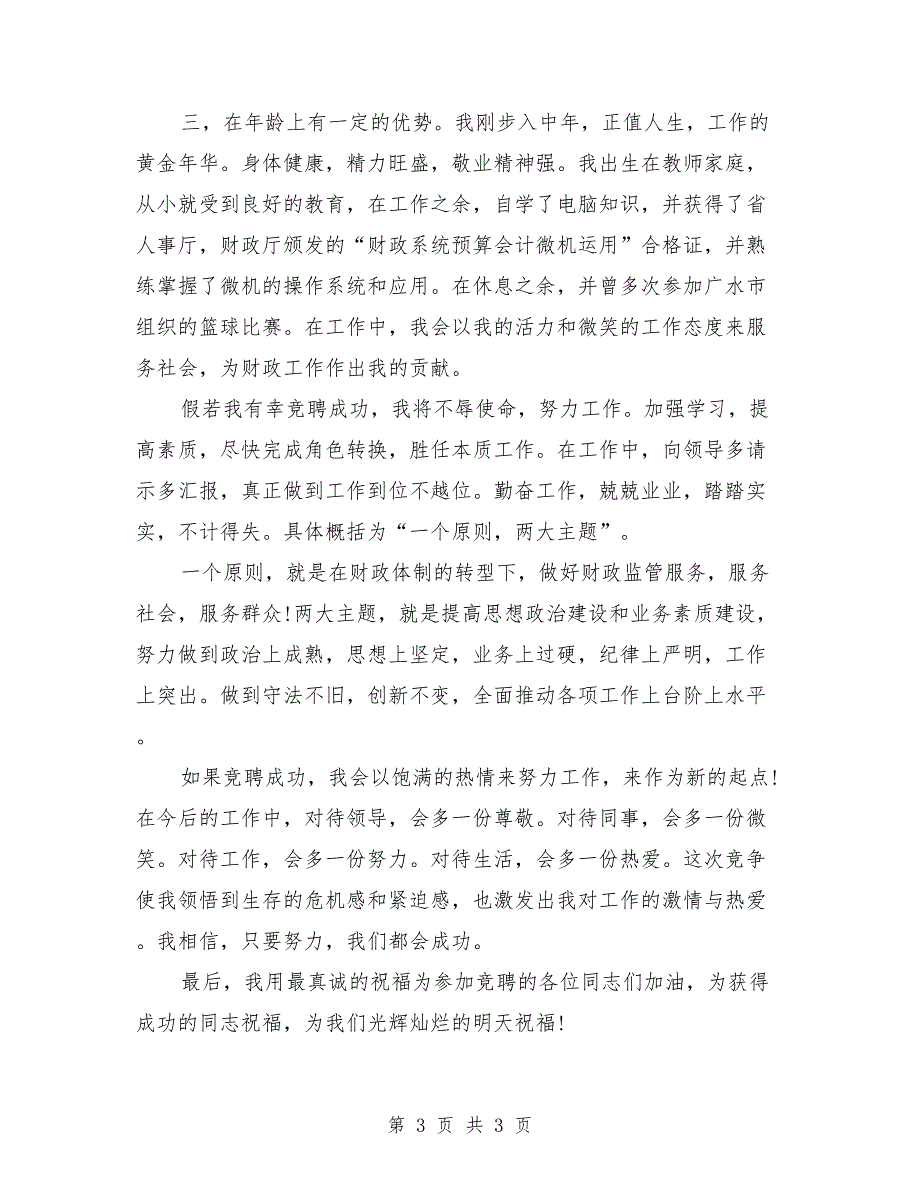 三，在年龄上有一定的优势。我刚步入中年，正值人生，工作的
黄金年华。身体健康，精力旺盛，敬业精神强。我出生在教师家庭，
从小就受到良好的教育，在工作之余，自学了电脑知识，并获得了省
人事厅，财政厅颁发的“财政系统预算会计微机运用”合格证，并熟
练掌握了微机的操作系统和应用。在休息之余，并曾多次参加广水市
组织的篮球比赛。在工作中，我会以我的活力和微笑的工作态度来服
务社会，为财政工作作出我的贡献。
假若我有幸竞聘成功，我将不辱使命，努力工作。加强学习，提
高素质，尽快完成角色转换，胜任本质工作。在工作中，向领导多请
示多汇报，真正做到工作到位不越位。勤奋工作，兢兢业业，踏踏实
实，不计得失。具体概括为“一个原则，两大主题”。
一个原则，就是在财政体制的转型下，做好财政监管服务，服务
社会，服务群众!两大主题，就是提高思想政治建设和业务素质建设，
努力做到政治上成熟，思想上坚定，业务上过硬，纪律上严明，工作
上突出。做到守法不旧，创新不变，全面推动各项工作上台阶上水平
。
如果竞聘成功，我会以饱满的热情来努力工作，来作为新的起点!
在今后的工作中，对待领导，会多一份尊敬。对待同事，会多一份微
笑。对待工作，会多一份努力。对待生活，会多一份热爱。这次竞争
使我领悟到生存的危机感和紧迫感，也激发出我对工作的激情与热爱
。我相信，只要努力，我们都会成功。
最后，我用最真诚的祝福为参加竞聘的各位同志们加油，为获得
成功的同志祝福，为我们光辉灿烂的明天祝福!
第 3 页 共 3 页